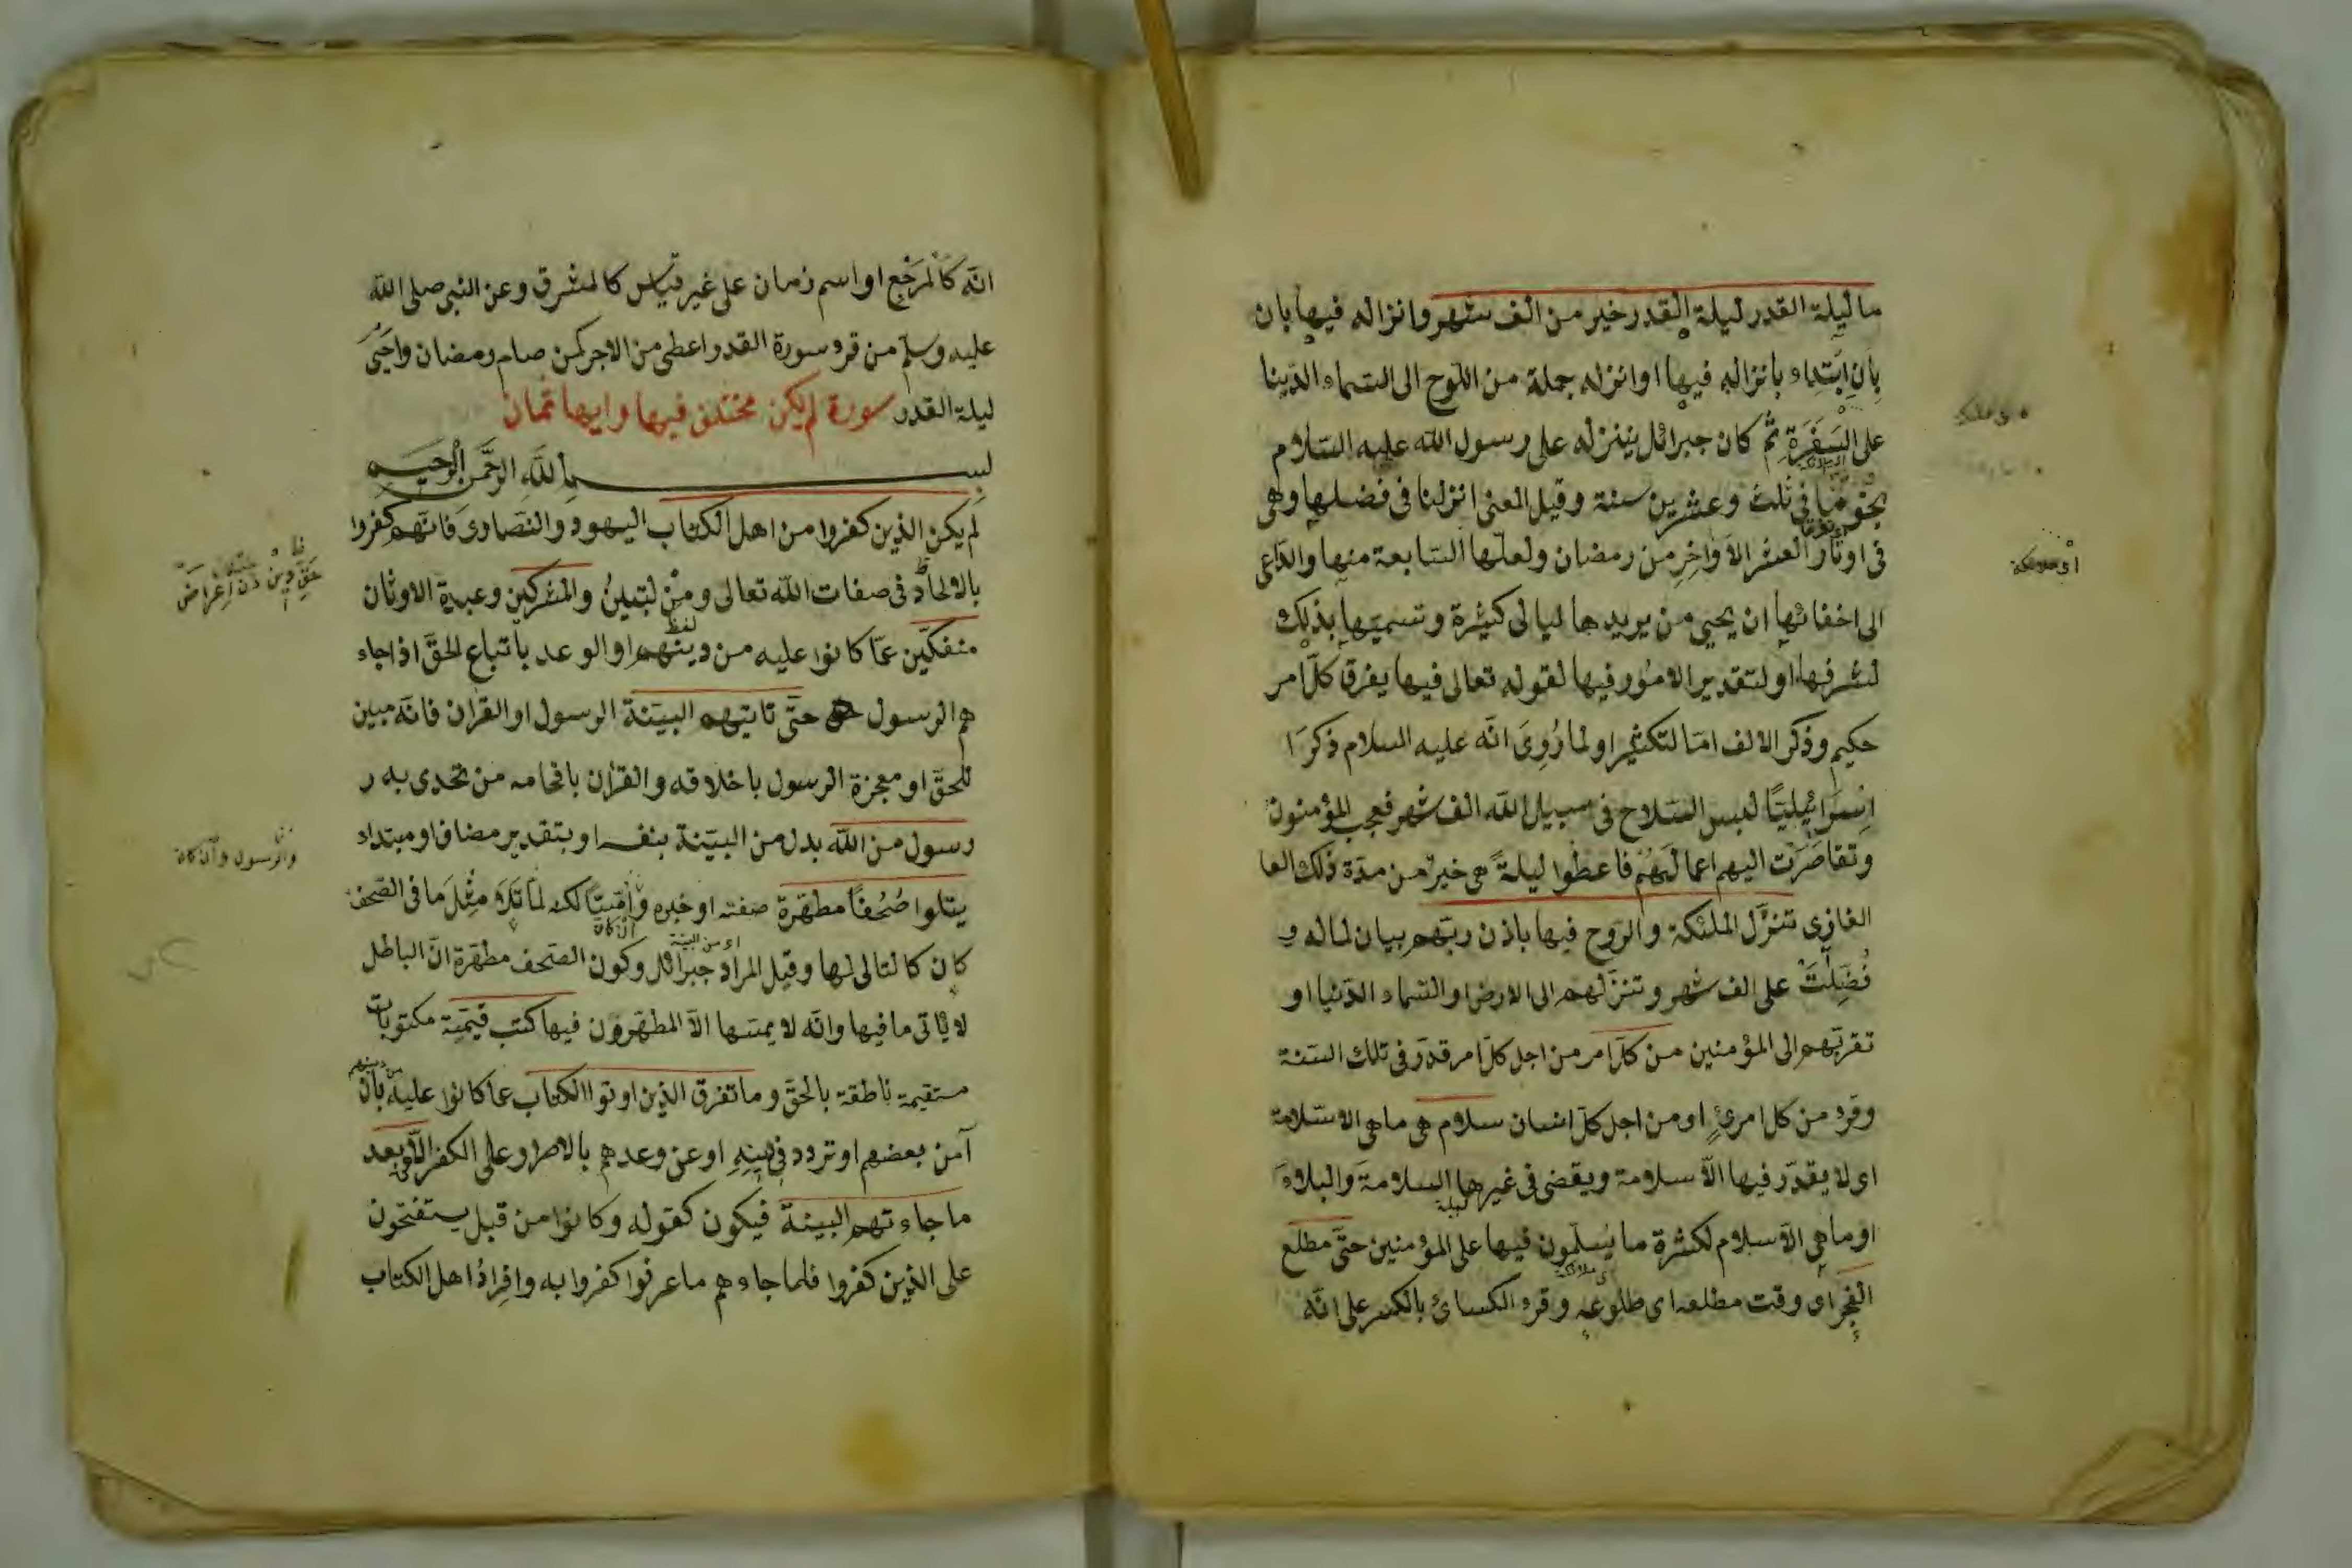 ما ليلة القدر ليلة القدر خير من الف شهر وانزاله فيها بان
بان ابتداء بانزاله فيها او انزله جملة من اللوح الى السماء الدنيا
على السفرة ثم كان جبرائل ينزله على رسول الله عليه السلام
نجوما فى ثلث وعشرين سنة وقيل المعنى انزلنا فى فضلها وهى
فى اوتار العشر الاواخر من رمضان ولعلها السابعة منها والداعى
الى اخفائها ان يحيى من يريدها ليالى كثيرة وتسميتها بذلك
لشرفها او لتقدير الامور فيها لقوله تعالى فيها يفرق كل امر
حكيم وذكر الالف اما لتكثير او لما روى انه عليه السلام ذكر ا
اسرائيليا لبس السلاح فى سبيل الله الف شهر فعجب المؤمنون
وتقاصرت اليهم اعمالهم فاعطوا ليلة هى خير من مدة ذلك الغا
الغازى تنزل الملئكة والروح فيها باذن ربهم بيان لما له و
فضلت على الف شهر وتنزلهم الى الارض او السماء الدنيا او
تقربهم الى المؤمنين من كل امر من اجل كل امر قدر فى تلك السنة
وقرء من كل امرئ او من اجل كل انسان سلام هى ما هى الا سلامة
اى لا يقدر فيها الا سلامة ويقضى فى غيرها السلامة والبلاء
او ما هى الا سلام لكثرة ما يسلمون فيها على المؤمنين حتى مطلع
الفجر اى وقت مطلعه اى طلوعه وقرء الكسائ بالكسر على انه
انه كالمرجع او اسم زمان على غير قياس كالمشرق وعن النبى صلى الله
عليه وسلم من قرء سورة القدر اعطى من الاجر كمن صام رمضان واحيى
ليلة القدر سورة لم يكن مختلف فيها وايها ثمان
بسم الله الرحمن الرحيم
لم يكن الذين كفروا من اهل الكتاب اليهود والنصارى فانهم كفروا
بالالحاد فى صفات الله تعالى ومن لتبيين والمشركين وعبدة الاوثان
منفكين عما كانوا عليه من دينهم او الوعد باتباع الحق اذا جاء
هم الرسول حتى تاتيهم البينة الرسول او القران فانه مبين
للحق او معجزة الرسول باخلاقه والقران بافحامه من تحدى به ر
رسول من الله بدل من البينة بنفسه او بتقدير مضاف او مبتداء
يتلوا صحفا مطهرة صفته او خبره واميا لكنه لما تلا مثل ما فى الصحف
كان كالتالى لها وقيل المراد جبرائل وكون الصحف مطهرة ان الباطل
لا ياتى ما فيها وانه لا يمسها الا المطهرون فيها كتب قيمة مكتوبات
مستقيمة ناطقة بالحق وما تفرق الذين اوتوا الكتاب عما كانوا عليه بان
آمن بعضهم او تردد فى دينه او عن وعدهم بالاصرار على الكفر الا من بعد
ما جاءتهم البينة فيكون كقوله وكانوا من قبل يستفتحون
على الذين كفروا فلما جاءهم ما عرفوا كفروا به وافراد اهل الكتاب
والرسول وان كان